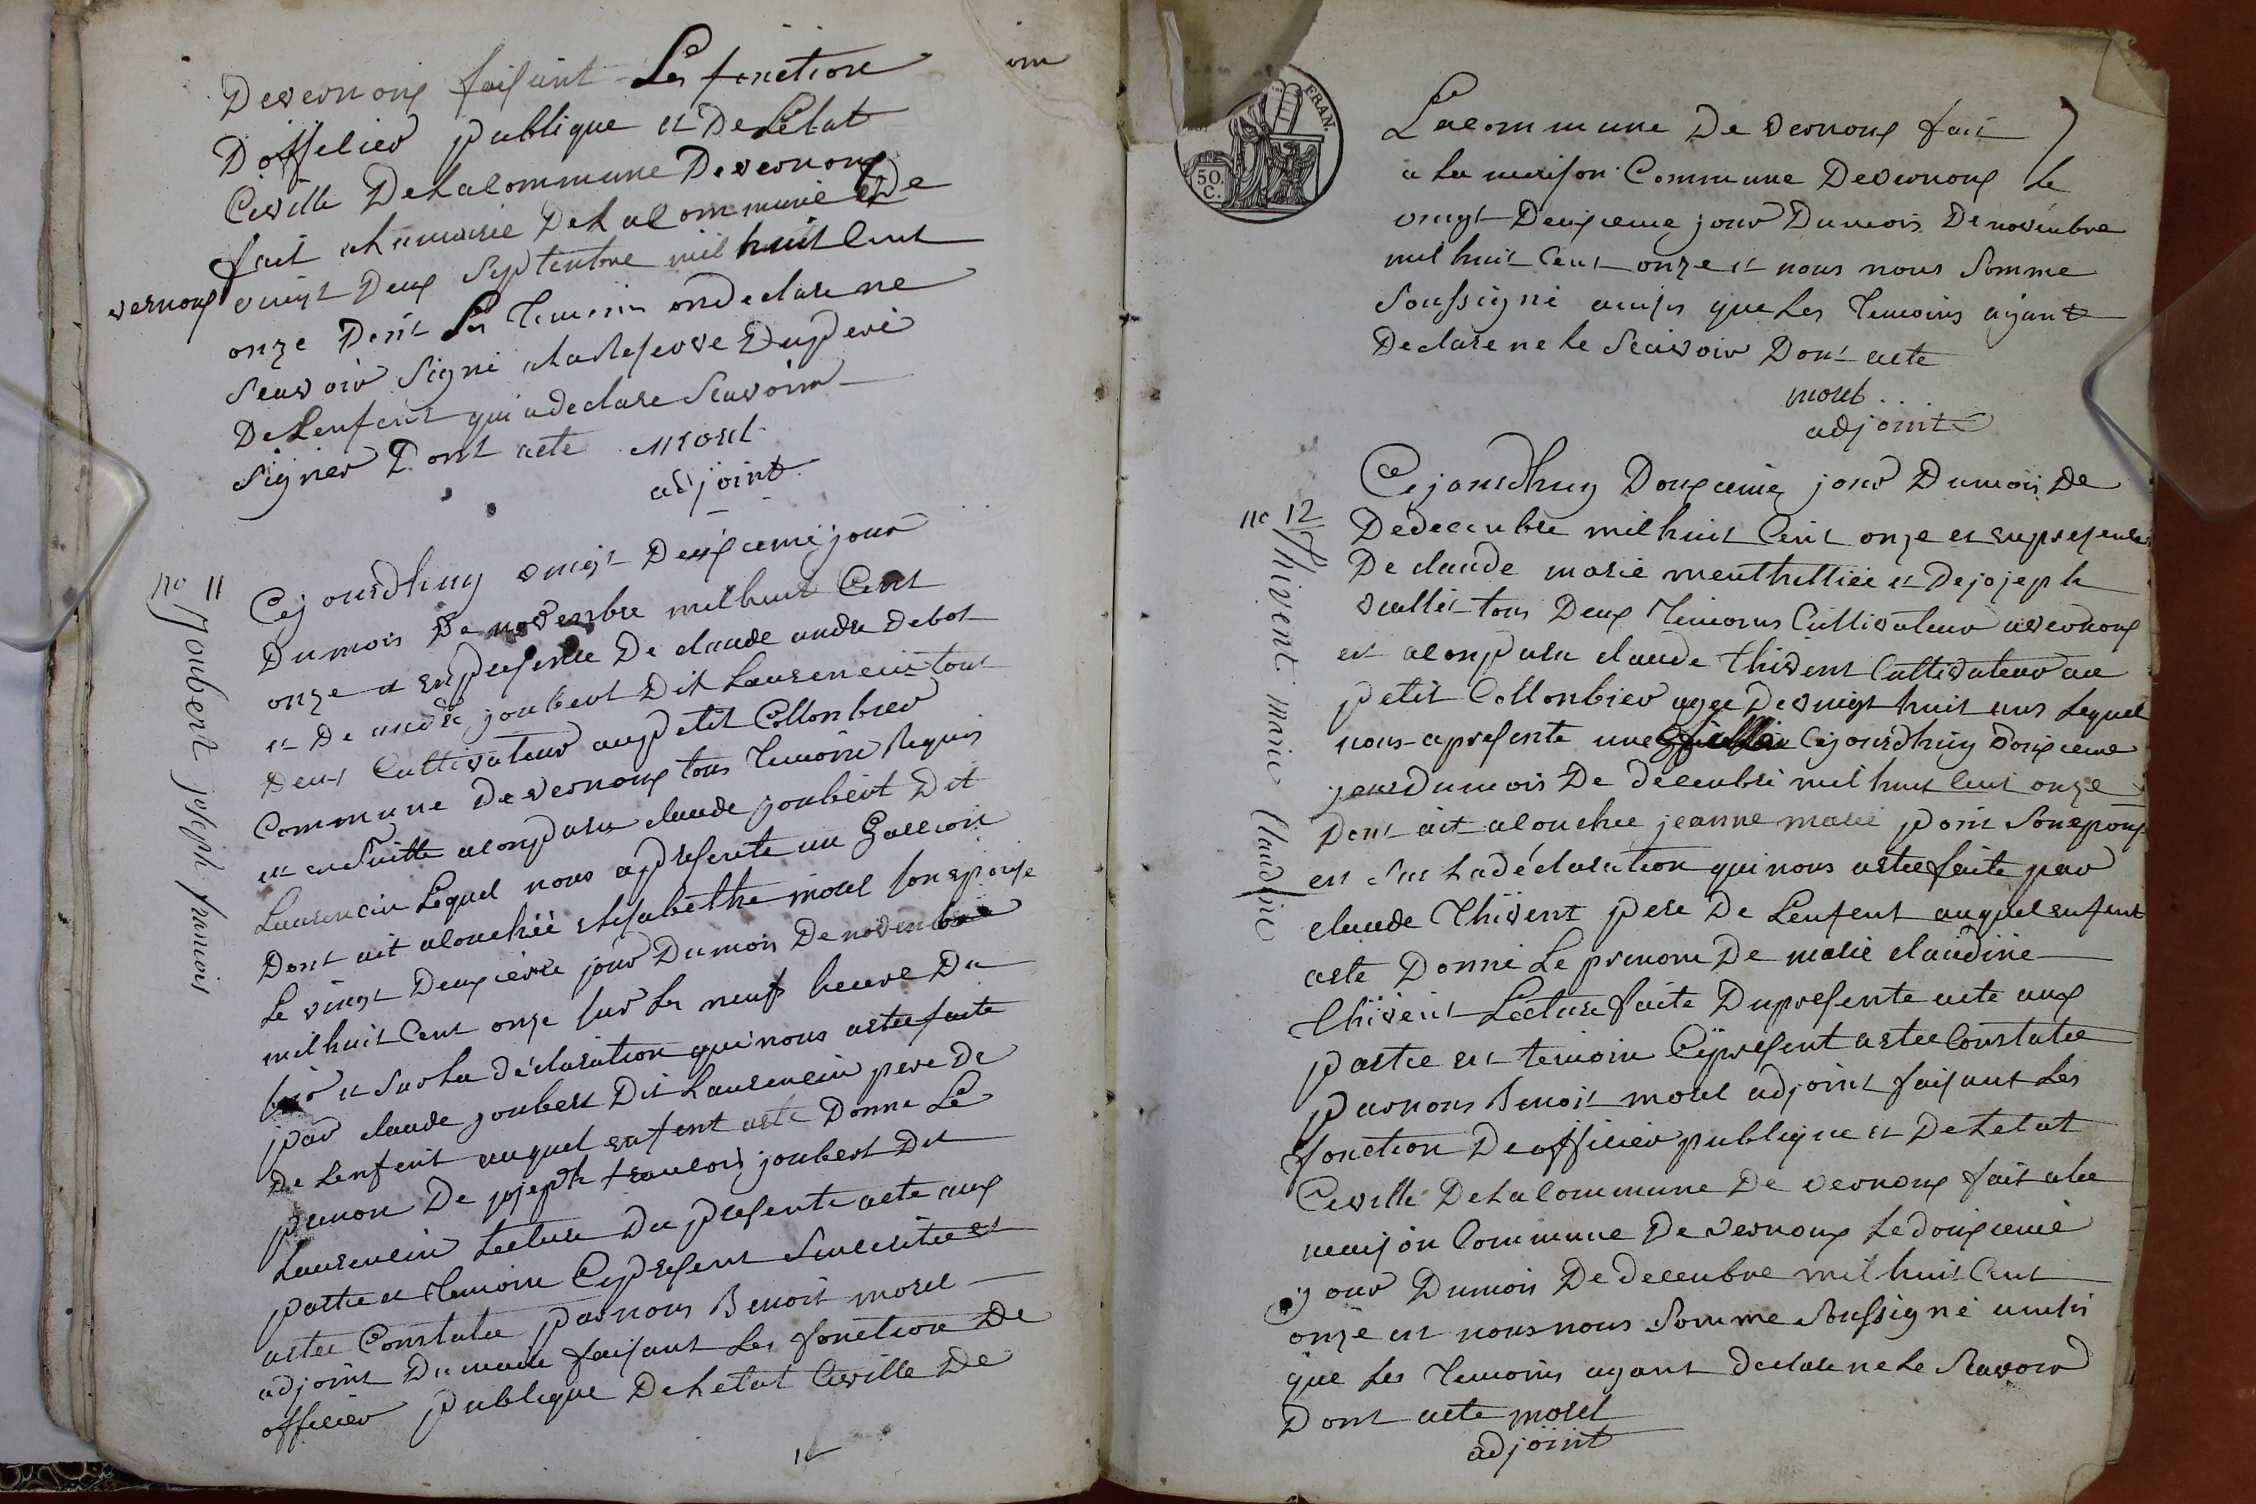 Devernoux faisant Les fonction
Dofficier publique et De Letat
Civille De La Commune De vernoux
fait a la mairie De La Commune De
vernoux vingt Deux Septembre mil huit Cent
onze Dont Les Temoin on declare ne
Scavoir Signé a la Reserve Du pere
De Lenfent qui a declare Scavoire
Signer Dont acte morel
adjoint
no 11
Joubert joseph francois
Cejourdhuy vingt Deuxieme jour
Du mois De novembre mil huit Cent
onze et en presence De claude andre Debot
et De andré joubert Dit Laurencin tout
Deux Cultivateur au petit Collonbier
Commune De vernoux tous Temoin Requis
et en Suitte a comparu claude joubert Dit
Laurencin Lequel nous a presente un Garcon
Dont ait alouchéé Elisabethe morel son epouse
Le vingt Deuxieme jour Du mois De novembre
mil huit Cent onze sur Les neuf heure Du
soir et Sur La déclaration qui nous a etee faite
par claude joubert Dit Laurencin pere De
De Lenfent auquel enfent a ete Donne Le
prenon De joseph francois joubert Dit
Laurencin Lecture Du presente acte aux
partie et Temoin Cy present
a etee Constatee par nous Benoit morel
adjoint Du maire faisant Les fonction De
officier publique De Letat Civille De
La Commune De vernoux fait
a La maison Commune De vernoux Le
vingt Deuxieme jour Du mois De novembre
mil huit Cent onze et nous nous Somme
Soussigné ainsi que Les Temoins ayant
Declare ne Le Scavoir Dont acte
morel
adjoint
50 C.
FRAN.
no 12
Thivent marie Claudine
Cejourdhuy Douxieme jour Du mois De
De decembre mil huit Cent onze et en presence
De claude marie et De joseph
tous Deux Temoins Cultivateur a vernoux
et a comparu claude Thivent Cultivateur au
petit Collonbier agee De vingt huit ans Lequel
nous a presente une fille Cejourdhuy Douxieme
jour Du mois De decembre mil huit Cent onze
Dont ait alouchee jeanne marie Son epoux
et Sur La déclaration qui nous a etee faite par
claude Thivent pere De Lenfent auquel enfent
a ete Donné Le prenom De marie claudine
Thivent Lecture faite Du presente acte aux
partie et temoin Cy present a etee Constatee
par nous Benoit morel adjoint faisant Les
fonction De officier publique et De Letat
Civille De La Commune De vernoux fait a La
maison Commune De vernoux Le douxieme
jour Du mois De decembre mil huit Cent
onze et nous nous Somme Soussigné ainsi
que Les Temoins ayant declare ne Le Scavoir
Dont acte morel
adjoint